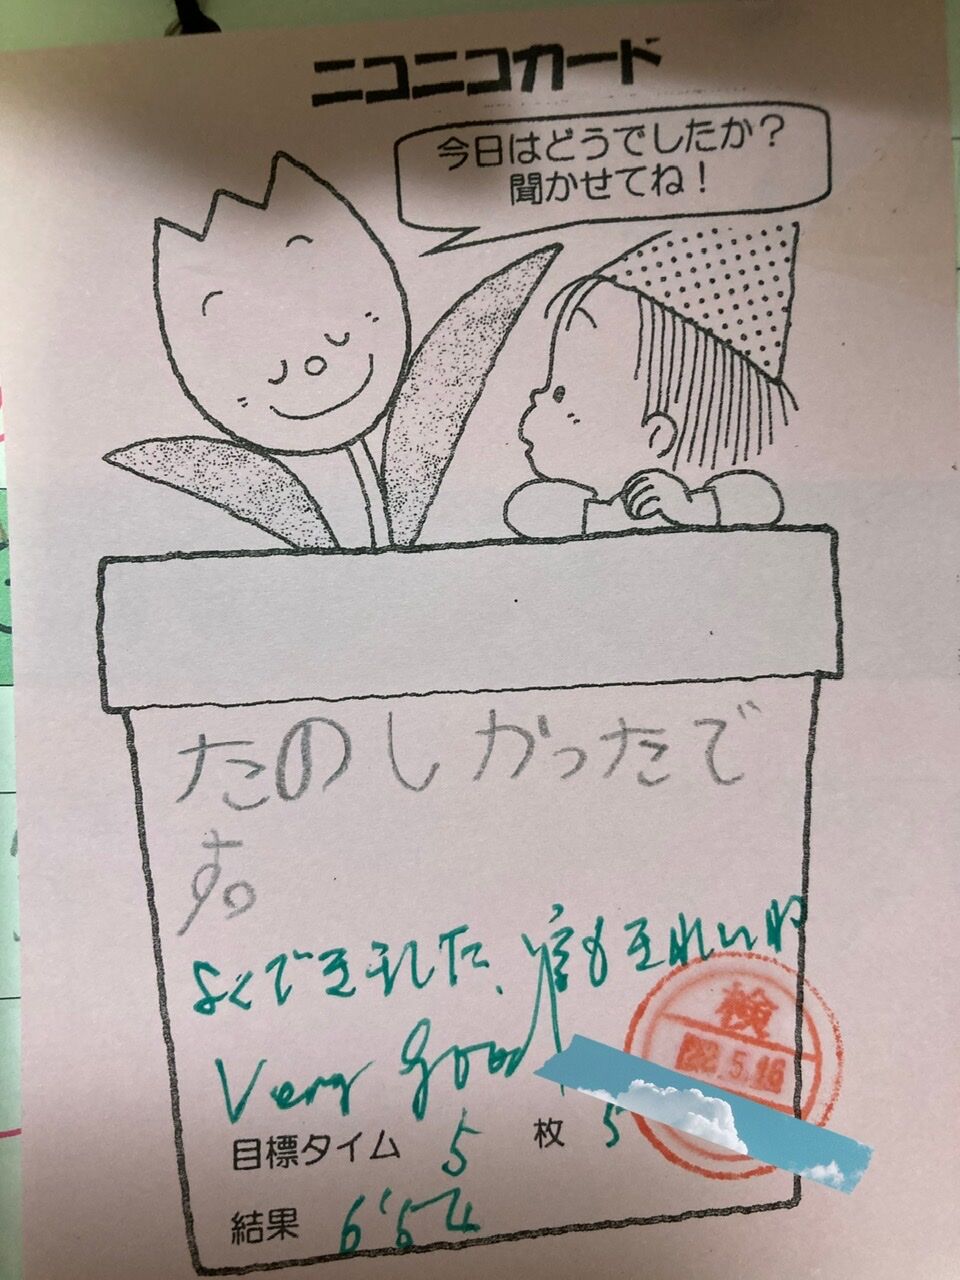 ニコニコカード
今日はどうでしたか？
聞かせてね！
たのしかったで
す。
よくできました、字もきれいね
Very good
目標タイム 5 枚 5
結果 6'54
検
22.5.16